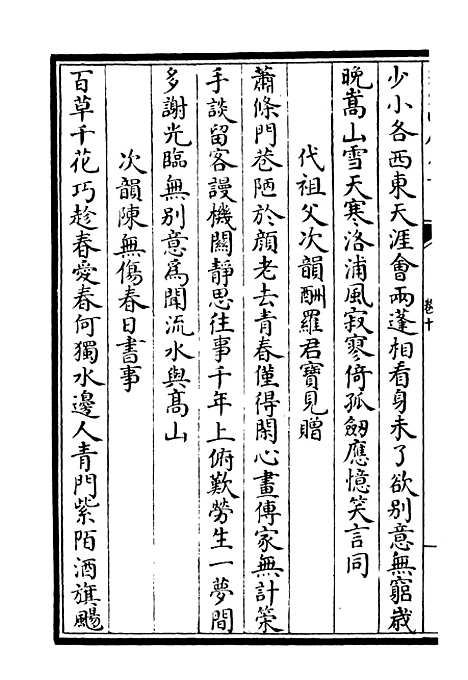 少小各西東天涯會兩蓬相看身未了欲別意無窮歲
晚嵩山雪天寒洛浦風寂寥倚孤劒應憶笑言同
代祖父次韻酬羅君寶見贈
蕭條門巷陋於顔老去青春僅得閑心畫傳家無計策
手談留客謾機關靜思往事千年上俯歎勞生一夢間
多謝光臨無別意爲聞流水與髙山
次韻陳無傷春日書事
百草千花巧趁春愛春何獨水邊人青門紫陌酒旗颺
卷十